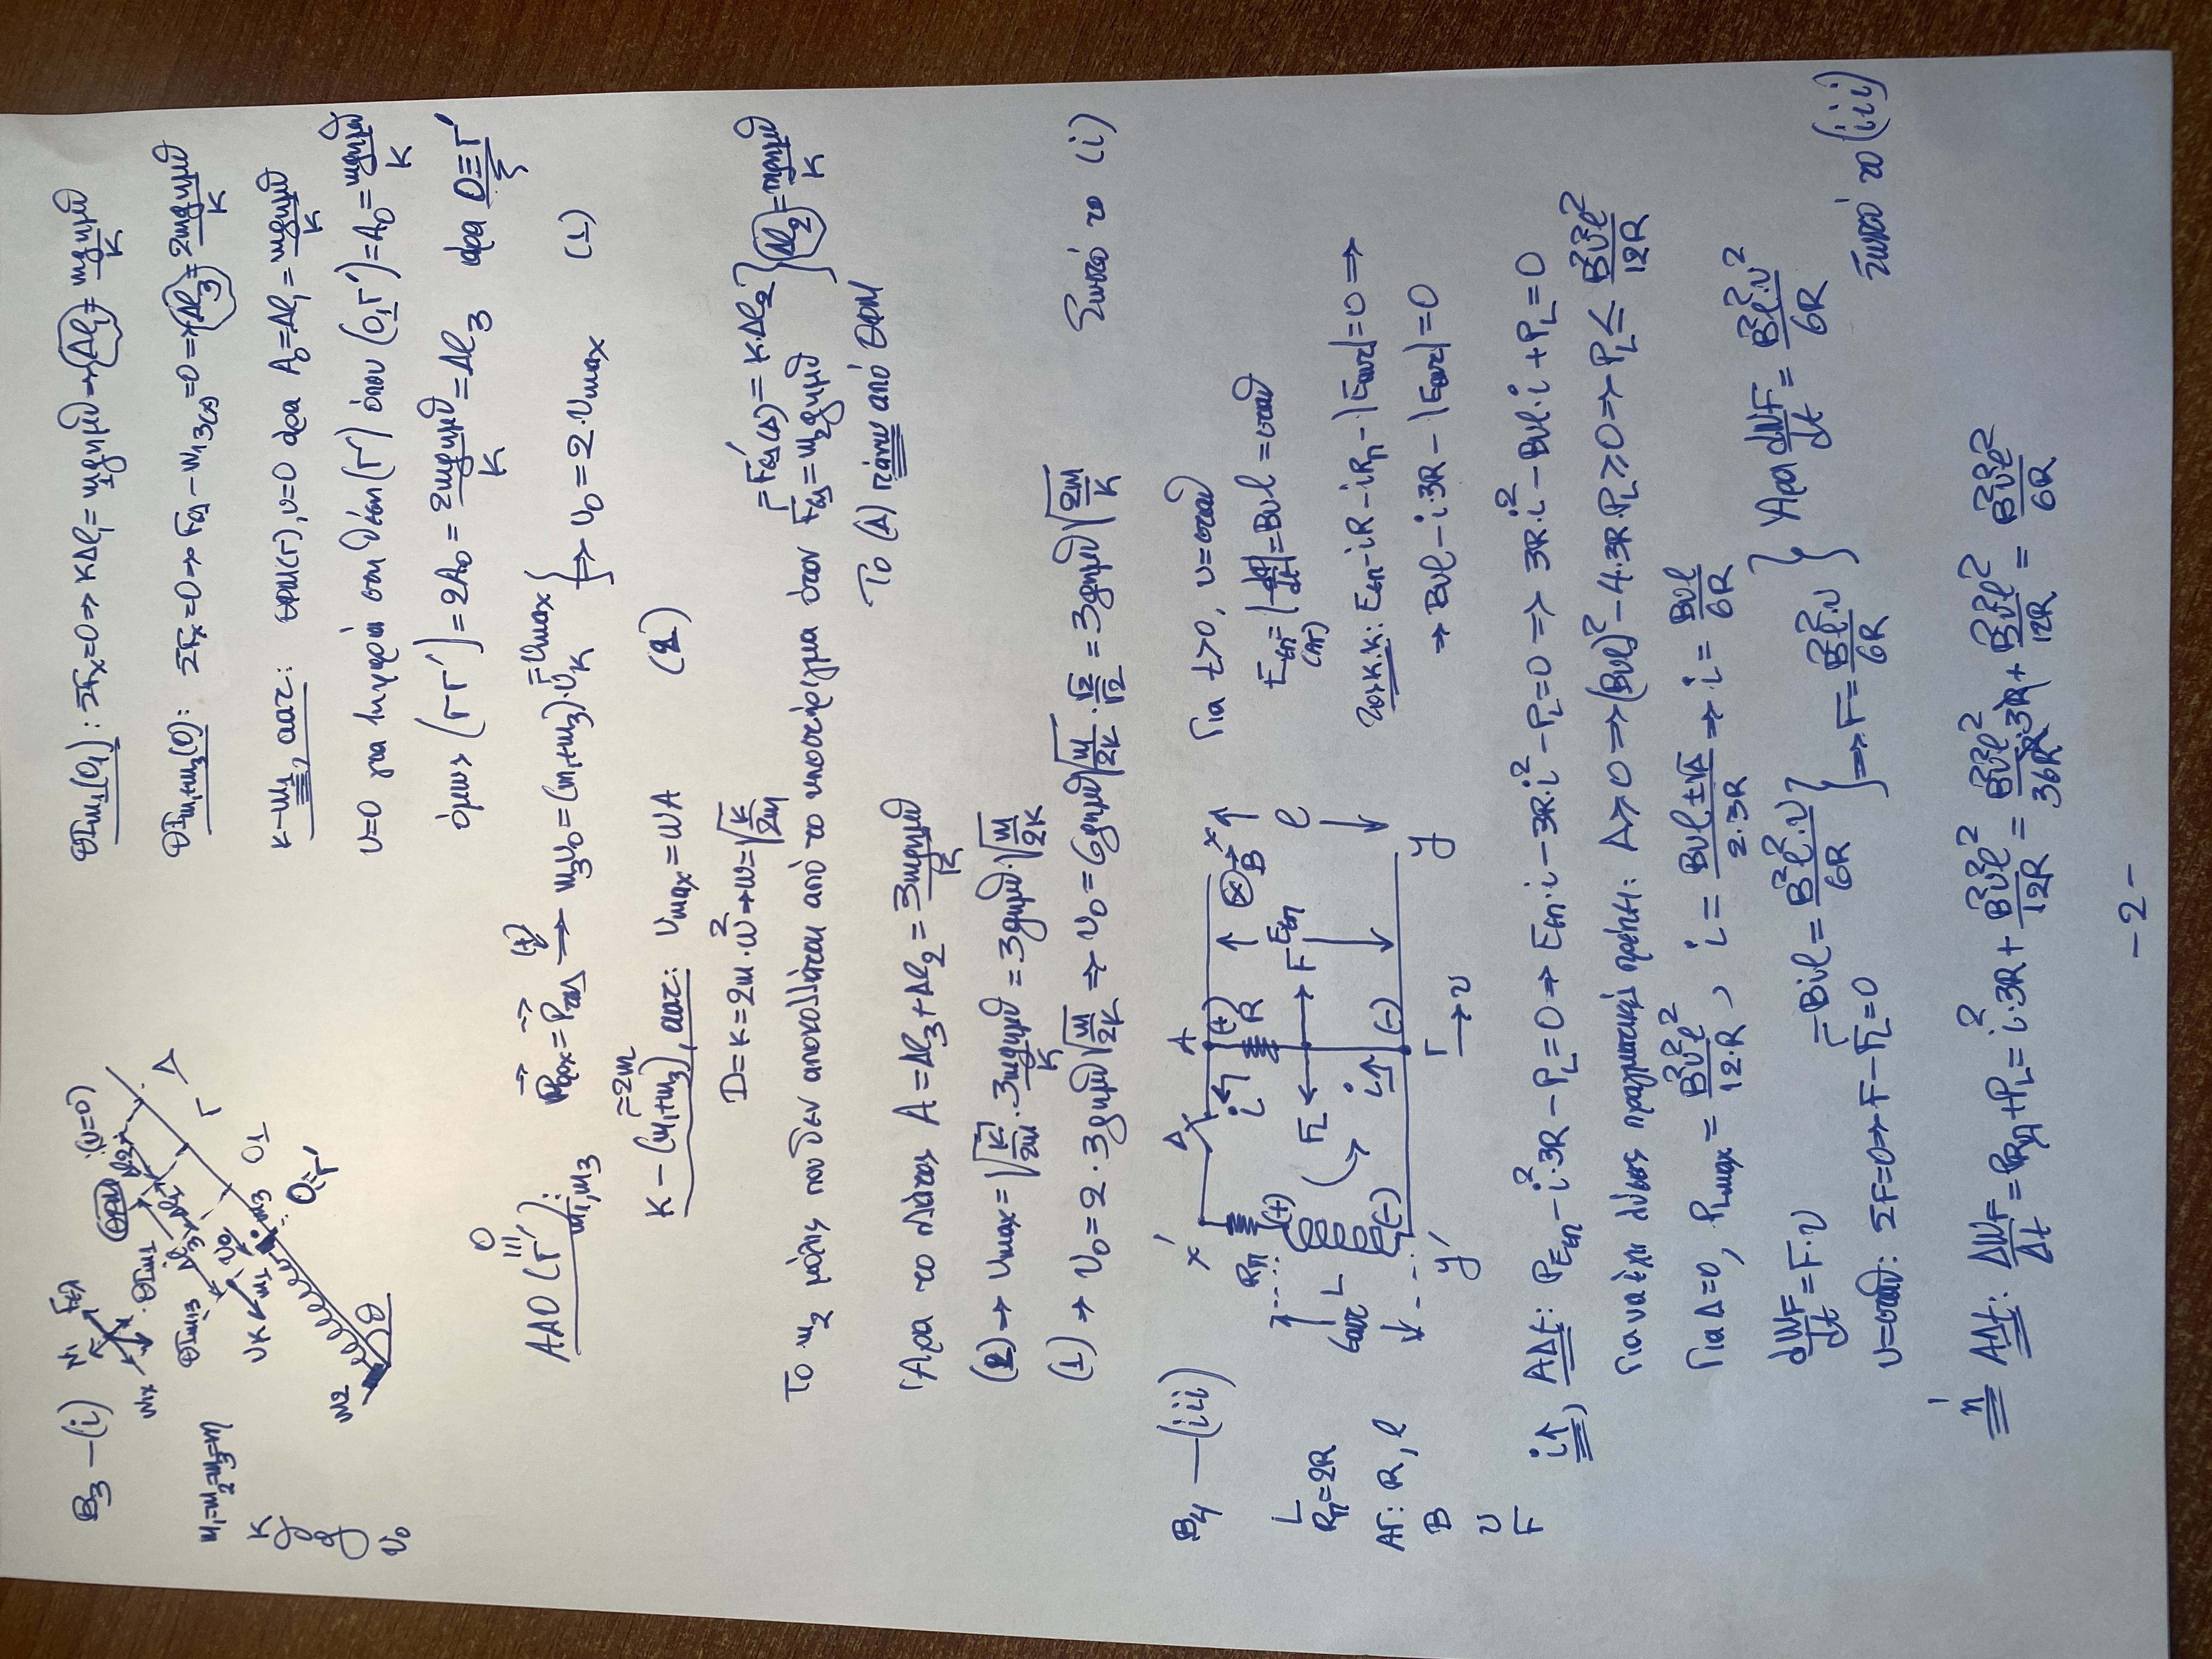 B₃ —(i)
N₁ Fελ
W₁x
m₁=m₂=m₃=m
ΘΦΜ (υ=0)
ΘΙm₁ Δℓ₁ Δℓ₂
ΘΙm₁₃ Δℓ₃
υK m₁ υ₀ m₃ O₁ Γ Δ
O≡Γ'
m₂ θ
υ₀ K
ΘΙm₁(O₁): ΣFx=0 ⇒ KΔℓ₁=m₁gημθ ⇒ Δℓ₁= mgημθ/K
ΘΙm₁+m₃(O): ΣFx=0 ⇒ Fελ – W₁₃(x)=0 ⇒ Δℓ₃= 2mgημθ/K
K–m₁, αατ: ΘΦΜ(Γ), υ=0 άρα A₀=Δℓ₁= mgημθ/K
υ=0 για 1η φορά στη θέση (Γ') όπου (O₁Γ')=A₀= mgημθ/K
όμως (ΓΓ')=2A₀= 2mgημθ/K =Δℓ₃ άρα O≡Γ'
O
≡
ΑΔΟ (Γ'): m₁,m₃ P⃗πριν=P⃗μετ (+)⇒ m₃υ₀=(m₁+m₃)·υK =υmax } ⇒ υ₀=2·υmax (1)
=2m
K–(m₁+m₃), αατ: υmax=ωA (2)
D=K=2m·ω² ⇒ ω=√(K/2m)
Το m₂ μόλις που δεν αποκολλάται από το υποστήριγμα όταν F'ελ=m₂gημθ =F'ελ(Δ)=K·Δℓ₂ } Δℓ₂= mgημθ/K
Το (Δ) πάνω από ΘΦΜ
Άρα το πλάτος A=Δℓ₃+Δℓ₂= 3mgημθ/K
(2) ⇒ υmax=√(K/2m) · 3mgημθ/K = 3gημθ·√(m/2K)
(1) ⇒ υ₀=2·3gημθ√(m/2K) ⇒ υ₀=6gημθ√(m/2K) · √2/√2 = 3gημθ√(2m/K) Σωστό το (i)
B₄ —(iii)
x' Δ A x
i (+) R ⊗ B⃗
RΠ (+)
Eαυτ L FL F Eεπ ℓ
(-) i↑ (-)
y' Γ y
→υ
L
RΠ=2R
ΑΓ: R, ℓ
B
υ
F
Για t>0, υ=σταθ
Eεπ(ΑΓ)=|-dΦ/dt|=Bυℓ=σταθ
2ος κ.κ: Eεπ–iR–iRΠ–|Eαυτ|=0 ⇒
⇒ Bυℓ–i·3R–|Eαυτ|=0
i↑, ΑΔε: PEεπ–i²·3R–PL=0 ⇒ Eεπ·i–3R·i²–PL=0 ⇒ 3R·i²–Bυℓ·i+PL=0
Για να έχει λύσεις πραγματικές πρέπει: Δ≥0 ⇒ (Bυℓ)²–4·3R·PL≥0 ⇒ PL≤ B²υ²ℓ²/12R
Για Δ=0, PLmax= B²υ²ℓ²/12·R , i= (Bυℓ±√Δ)/2·3R ⇒ i= Bυℓ/6R
dWF/dt=F·υ
=Biℓ= B²ℓ²·υ/6R
υ=σταθ: ΣF=0 ⇒ F–FL=0 } ⇒ F= B²ℓ²·υ/6R } Άρα dWF/dt= B²ℓ²·υ²/6R
Σωστό το (iii)
ή ΑΔε: ΔWF/Δt=PRολ+PL=i²·3R+ B²υ²ℓ²/12R = B²υ²ℓ²/36R² ·3R+ B²υ²ℓ²/12R = B²υ²ℓ²/6R
–2–